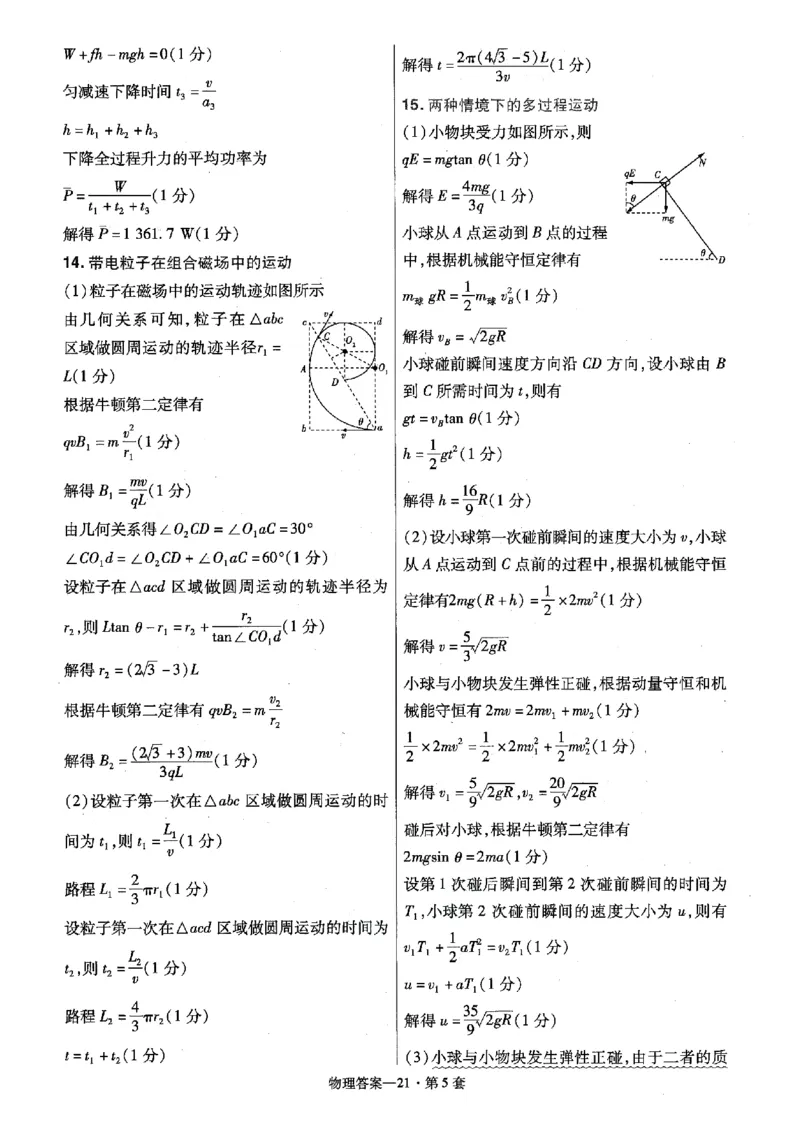 W + fh - mgh = 0(1 分)
匀减速下降时间 t₃ = v/a₃
h = h₁ + h₂ + h₃
下降全过程升力的平均功率为
P̄ = W/(t₁ + t₂ + t₃)(1 分)
解得 P̄ = 1 361.7 W(1 分)
14. 带电粒子在组合磁场中的运动
(1)粒子在磁场中的运动轨迹如图所示
由几何关系可知,粒子在 △abc
区域做圆周运动的轨迹半径r₁ =
L(1 分)
根据牛顿第二定律有
qvB₁ = m v²/r₁(1 分)
解得 B₁ = mv/qL(1 分)
c
v
d
C
O₂
A
O₁
D
θ
b
v
a
由几何关系得∠O₂CD = ∠O₁aC = 30°
∠CO₁d = ∠O₂CD + ∠O₁aC = 60°(1 分)
设粒子在△acd 区域做圆周运动的轨迹半径为
r₂,则 Ltan θ - r₁ = r₂ + r₂/tan∠CO₁d(1 分)
解得 r₂ = (2√3 - 3)L
根据牛顿第二定律有 qvB₂ = m v₂/r₂
解得 B₂ = (2√3 + 3)mv/3qL(1 分)
(2)设粒子第一次在△abc 区域做圆周运动的时
间为 t₁,则 t₁ = L₁/v(1 分)
路程 L₁ = 2/3 πr₁(1 分)
设粒子第一次在△acd 区域做圆周运动的时间为
t₂,则 t₂ = L₂/v(1 分)
路程 L₂ = 4/3 πr₂(1 分)
t = t₁ + t₂(1 分)
解得 t = 2π(4√3 - 5)L/3v(1 分)
15. 两种情境下的多过程运动
(1)小物块受力如图所示,则
qE = mgtan θ(1 分)
解得 E = 4mg/3q(1 分)
小球从 A 点运动到 B 点的过程
中,根据机械能守恒定律有
N
qE
C
θ
mg
θ
D
m球 gR = 1/2 m球 v²_B(1 分)
解得 v_B = √2gR
小球碰前瞬间速度方向沿 CD 方向,设小球由 B
到 C 所需时间为 t,则有
gt = v_Btan θ(1 分)
h = 1/2 gt²(1 分)
解得 h = 16/9 R(1 分)
(2)设小球第一次碰前瞬间的速度大小为 v,小球
从 A 点运动到 C 点前的过程中,根据机械能守恒
定律有2mg(R + h) = 1/2 × 2mv²(1 分)
解得 v = 5/3 √2gR
小球与小物块发生弹性正碰,根据动量守恒和机
械能守恒有 2mv = 2mv₁ + mv₂(1 分)
1/2 × 2mv² = 1/2 × 2mv₁² + 1/2 mv₂²(1 分)
解得 v₁ = 5/9 √2gR,v₂ = 20/9 √2gR
碰后对小球,根据牛顿第二定律有
2mgsin θ = 2ma(1 分)
设第 1 次碰后瞬间到第 2 次碰前瞬间的时间为
T₁,小球第 2 次碰前瞬间的速度大小为 u,则有
v₁T₁ + 1/2 aT₁² = v₂T₁(1 分)
u = v₁ + aT₁(1 分)
解得 u = 35/9 √2gR(1 分)
(3)小球与小物块发生弹性正碰,由于二者的质
物理答案—21·第 5 套